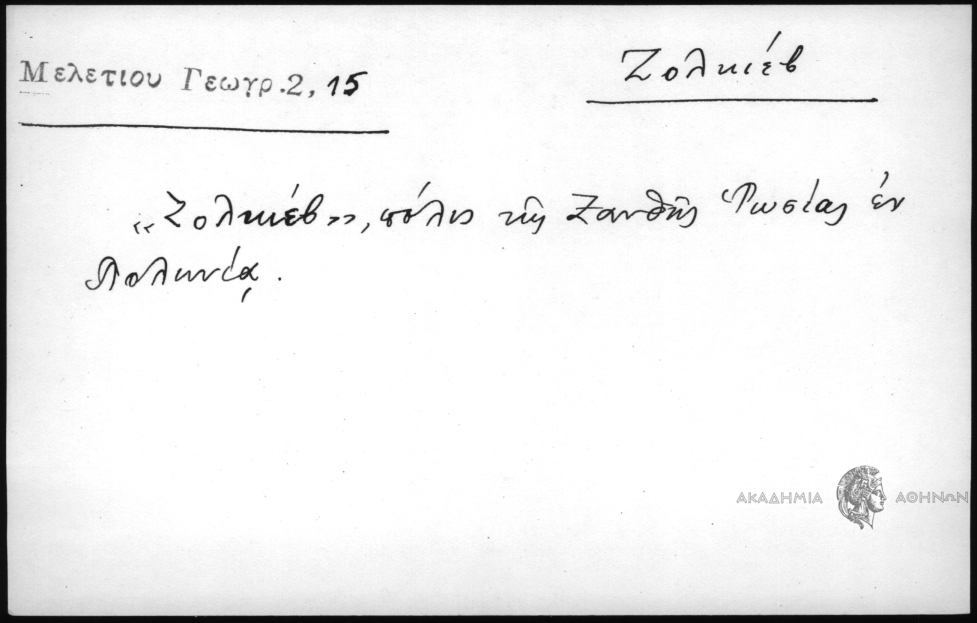 Μελετιου Γεωγρ.2, 15
Ζολκιέβ
«Ζολκιέβ», πόλις τῆς Ξανθῆς Ῥωσίας ἐν
Πολωνίᾳ.
ΑΚΑΔΗΜΙΑ ΑΘΗΝΩΝ